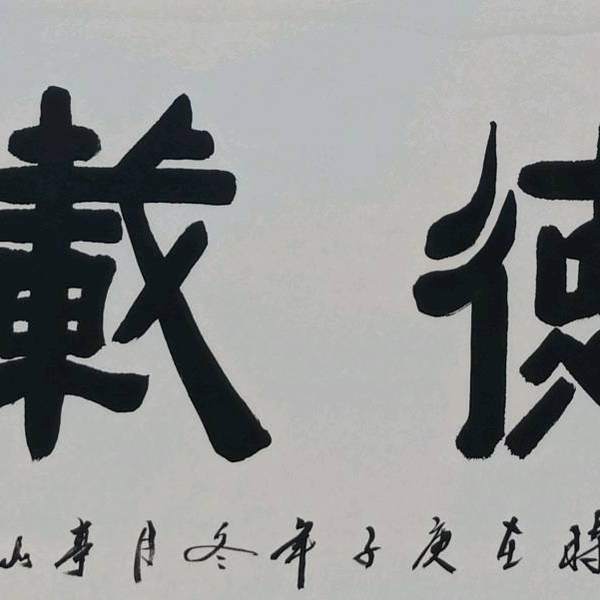 德載
時在庚子年冬月亭山